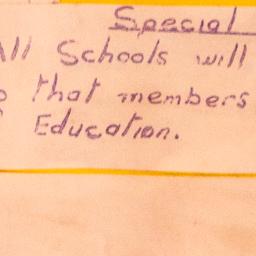 Special
All Schools will
that members
Education.